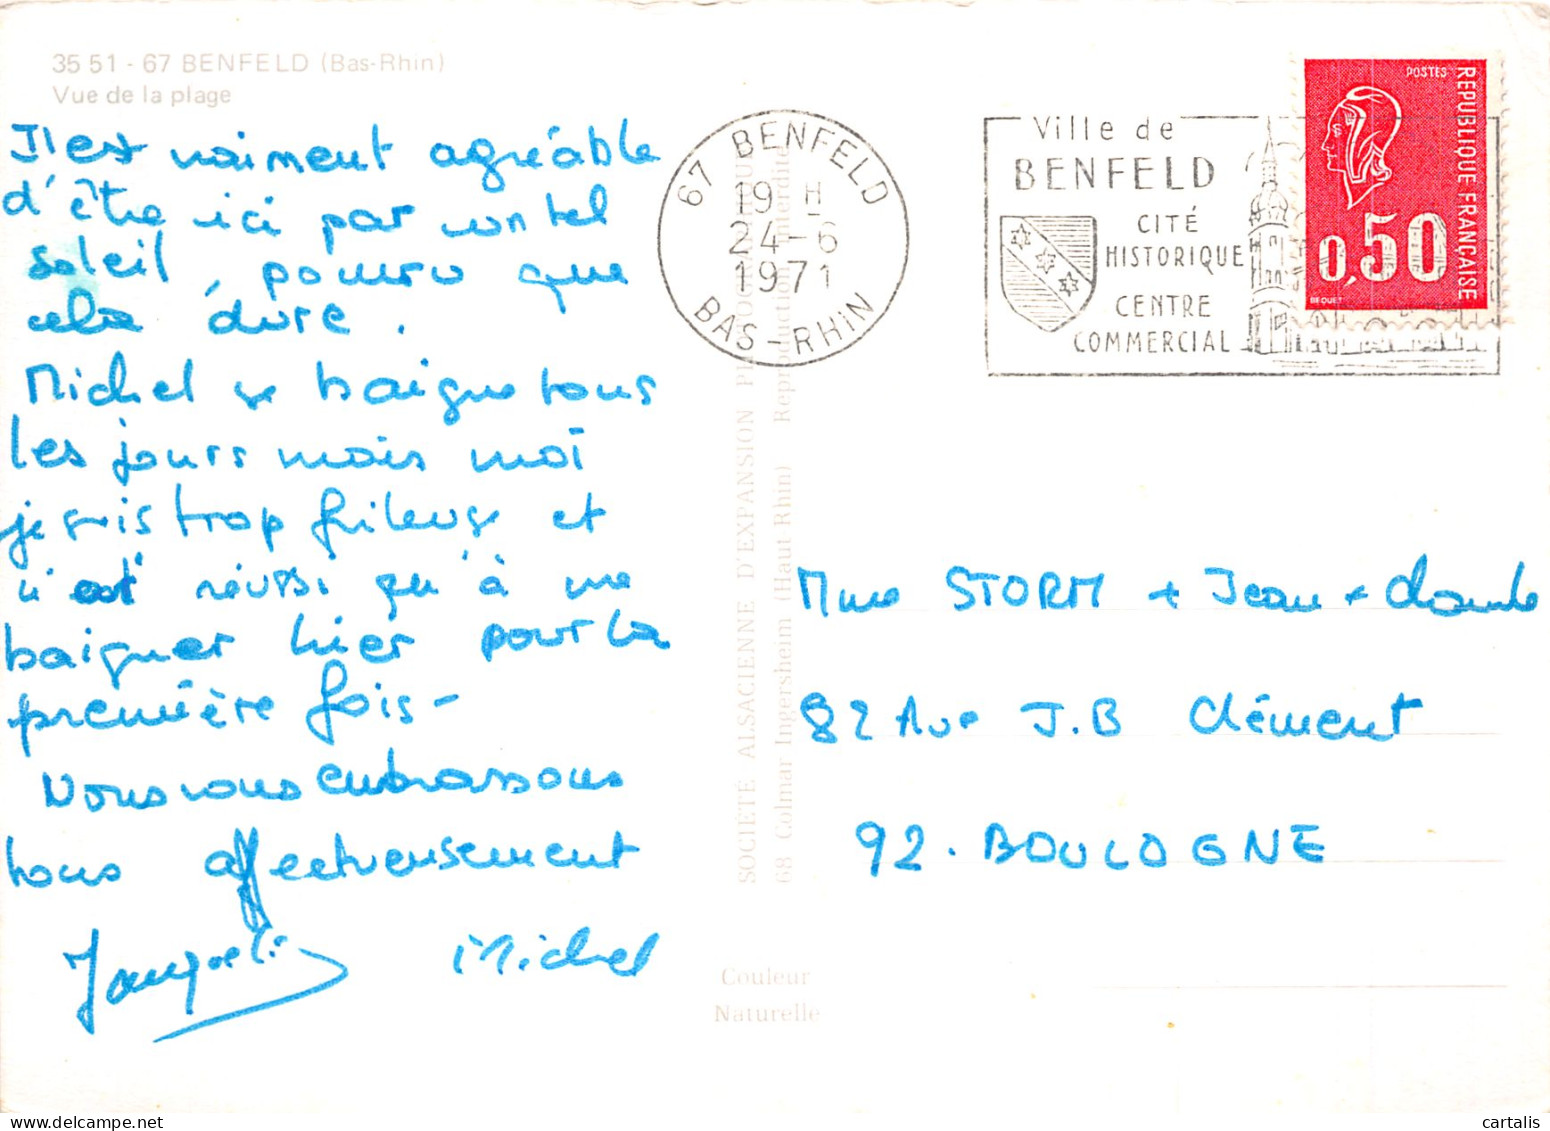 35 51 - 67 BENFELD (Bas-Rhin)
Vue de la plage
Il est vraiment agréable
d'être ici par un tel
soleil, pourvu que
cela dure.
Michel se baigne tous
les jours mais moi
je suis trop frileuse et
n'ai réussi qu'à me
baigner hier pour la
première fois -
Nous vous embrassons
tous affectueusement
Michel
67 BENFELD
19 H
24-6
1971
BAS-RHIN
Ville de
BENFELD
CITÉ
HISTORIQUE
CENTRE
COMMERCIAL
POSTES
REPUBLIQUE FRANÇAISE
0,50
BEQUET
SOCIÉTÉ ALSACIENNE D'EXPANSION
68 Colmar Ingersheim (Haut Rhin) Reproduction interdite
Couleur
Naturelle
Mme STORM + Jean + Claude
82 Ave J.B Clément
92. BOULOGNE
cartalis